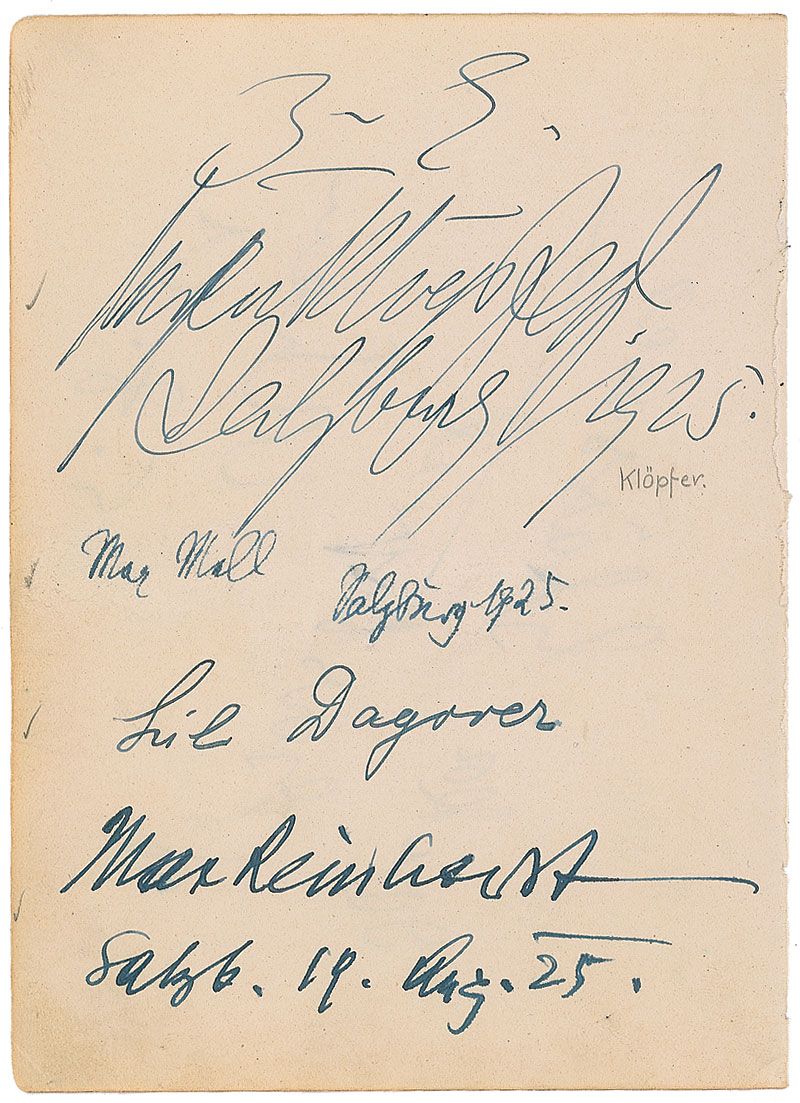 Eugen Klöpfer
Salzburg 1925.
Klöpfer.
Max Mell
Salzburg 1925.
Lil Dagover
Max Reinhardt
Salzb. 19. Aug. 25.